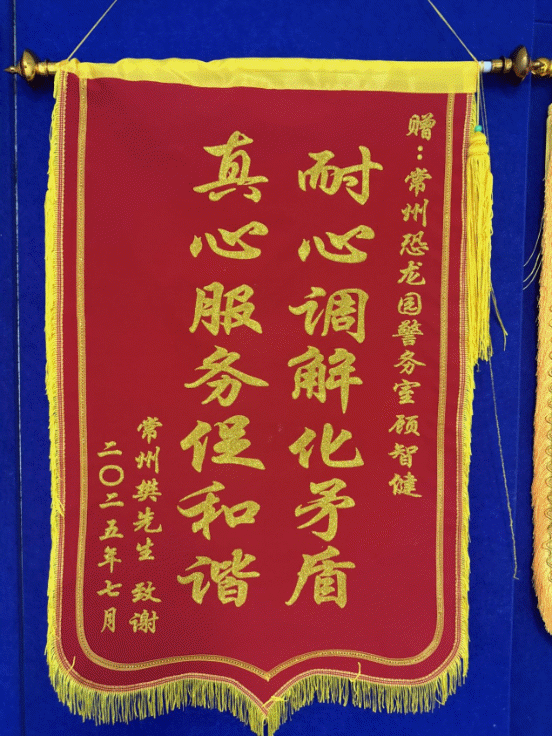 赠：常州恐龙园警务室顾智健
耐心调解化矛盾
真心服务促和谐
常州樊先生 致谢
二〇二五年七月